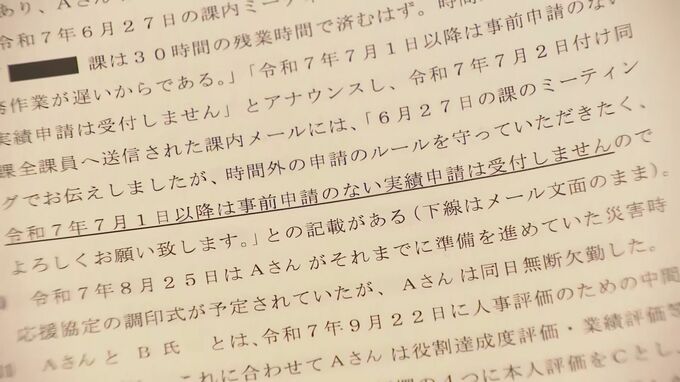 あり、Aさん
令和7年6月27日の課内ミーテ
課は30時間の残業時間で済むはず。時間
作業が遅いからである。」「令和7年7月1日以降は事前申請のない
実績申請は受付しません」とアナウンスし、令和7年7月2日付け同
課全課員へ送信された課内メールには、「6月27日の課のミーティン
グでお伝えしましたが、時間外の申請のルールを守っていただきたく、
令和7年7月1日以降は事前申請のない実績申請は受付しませんので
よろしくお願い致します。」との記載がある(下線はメール文面のまま)。
令和7年8月25日はAさんがそれまでに準備を進めていた災害時
応援協定の調印式が予定されていたが、Aさんは同日無断欠勤した。
AさんとB氏とは、令和7年9月22日に人事評価のための中間
これに合わせてAさんは役割達成度評価・業績評価等
の4つに本人評価をCとし、